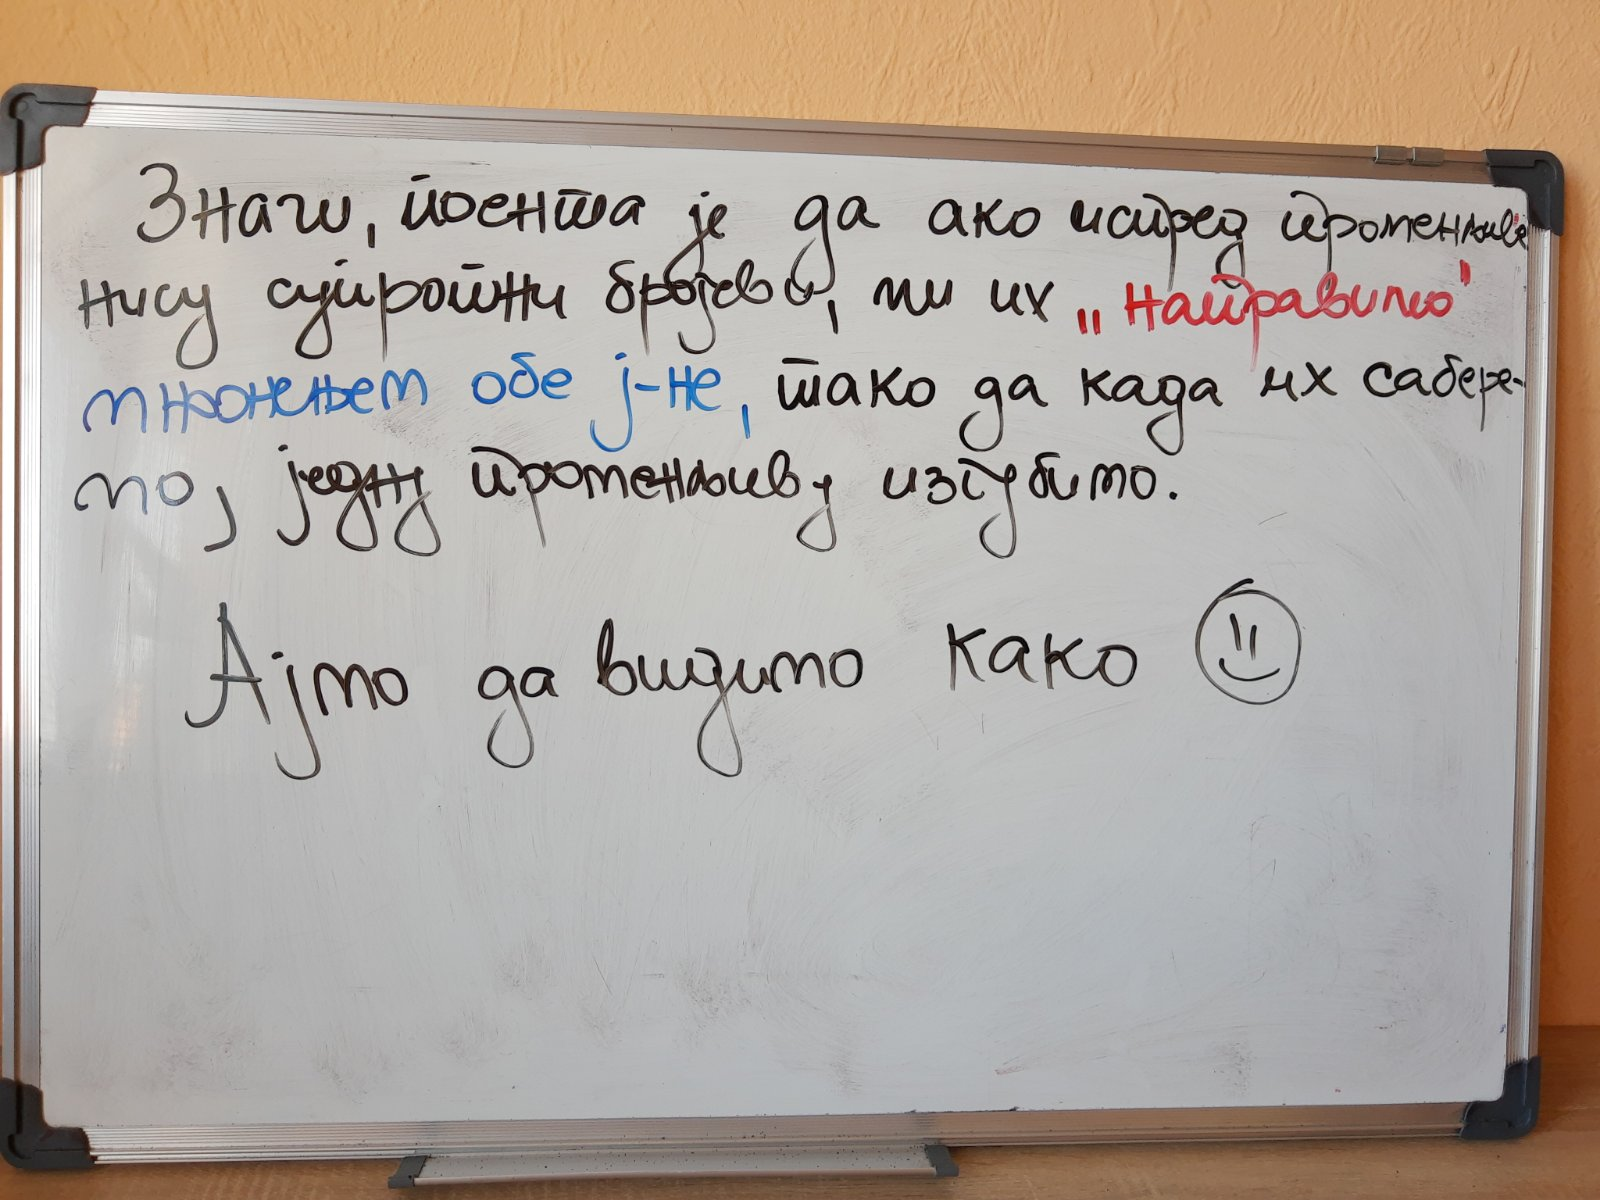 Значи, поента је да ако испред променљиве
нису супротни бројеви, ми их „направимо"
множењем обе ј-не, тако да када их сабере-
мо, једну променљиву изгубимо.
Ајмо да видимо како